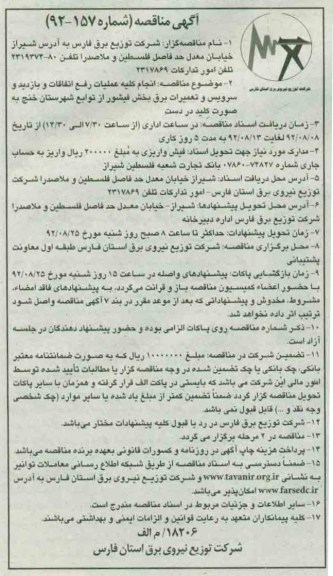 آگهی مناقصه (شماره ۱۵۷-۹۲)
۱- نام مناقصه‌گزار: شرکت توزیع برق فارس به آدرس شیراز
خیابان معدل حد فاصل فلسطین و ملاصدرا تلفن ۸۰-۲۳۱۹۳۷۳
تلفن امور تدارکات ۲۳۱۷۸۶۹
شرکت توزیع نیروی برق استان فارس
۲- موضوع مناقصه: انجام کلیه عملیات رفع اتفاقات و بازدید و
سرویس و تعمیرات برق بخش فیشور از توابع شهرستان خنج به
صورت کلید در دست
۳- زمان دریافت اسناد مناقصه: در ساعات اداری (از ساعت ۷/۳۰ الی ۱۲/۳۰) از تاریخ
۹۲/۰۸/۰۸ لغایت ۹۲/۰۸/۱۳ به مدت ۵ روز کاری
۴- مدارک مورد نیاز جهت تحویل اسناد: فیش واریزی به مبلغ ۲۰۰۰۰۰ ریال واریز به حساب
جاری شماره ۰۷۸۶۰-۷۳۸۲۷ بانک تجارت شعبه فلسطین شیراز
۵- محل دریافت اسناد: شیراز خیابان معدل حد فاصل فلسطین و ملاصدرا شرکت
توزیع نیروی برق استان فارس- امور تدارکات تلفن ۲۳۱۷۸۶۹
۶- آدرس محل تحویل پیشنهادها: شیراز- خیابان معدل حد فاصل فلسطین و ملاصدرا
شرکت توزیع برق فارس اداره دبیرخانه
۷- زمان تحویل پیشنهادات: حداکثر تا ساعت ۸ صبح روز شنبه مورخ ۹۲/۰۸/۲۵
۸- محل برگزاری مناقصه: شرکت توزیع نیروی برق استان فارس طبقه اول معاونت
پشتیبانی
۹- زمان بازگشایی پاکات: پیشنهادهای واصله در ساعت ۱۵ روز شنبه مورخ ۹۲/۰۸/۲۵
با حضور اعضاء کمیسیون مناقصه باز و قرائت می‌گردد. به پیشنهادهای فاقد امضاء،
مشروط، مخدوش و پیشنهاداتی که بعد از موعد مقرر در بند ۷ آگهی مناقصه واصل شود
ترتیب اثر داده نخواهد شد.
۱۰- ذکر شماره مناقصه روی پاکات الزامی بوده و حضور پیشنهاد دهندگان در جلسه
آزاد است.
۱۱- تضمین شرکت در مناقصه: مبلغ ۱۰۰۰۰۰۰۰ ریال که به صورت ضمانتنامه معتبر
بانکی، چک بانکی یا چک تضمین شده در وجه مناقصه گزار یا مطالبات تأیید شده توسط
امور مالی این شرکت می باشد که بایستی در پاکت الف قرار گرفته و همزمان با سایر پاکات
تحویل مناقصه گزار گردد ضمناً تضمین کمتر از مبلغ یاد شده یا سایر موارد (چک شخصی
وجه نقد و ..) قابل قبول نمی باشد.
۱۲- شرکت توزیع برق فارس در رد یا قبول کلیه پیشنهادات مختار می‌باشد.
۱۳- مناقصه در ۲ مرحله برگزار می گردد.
۱۴- پرداخت هزینه چاپ آگهی در روزنامه و کسورات قانونی بعهده برنده مناقصه می‌باشد
۱۵- ضمناً دسترسی به اسناد مناقصه از طریق شبکه اطلاع رسانی معاملات توانیر
به نشانی www.tavanir.org.ir و شرکت توزیع نیروی برق استان فارس به آدرس
www.farsedc.ir امکان‌پذیر می‌باشد.
۱۶- سایر اطلاعات و جزئیات مربوط در اسناد مناقصه مندرج است.
۱۷- کلیه پیمانکاران متعهد به رعایت قوانین و الزامات ایمنی و بهداشتی می‌باشند.
۱۸۲۰۶/ م الف
شرکت توزیع نیروی برق استان فارس